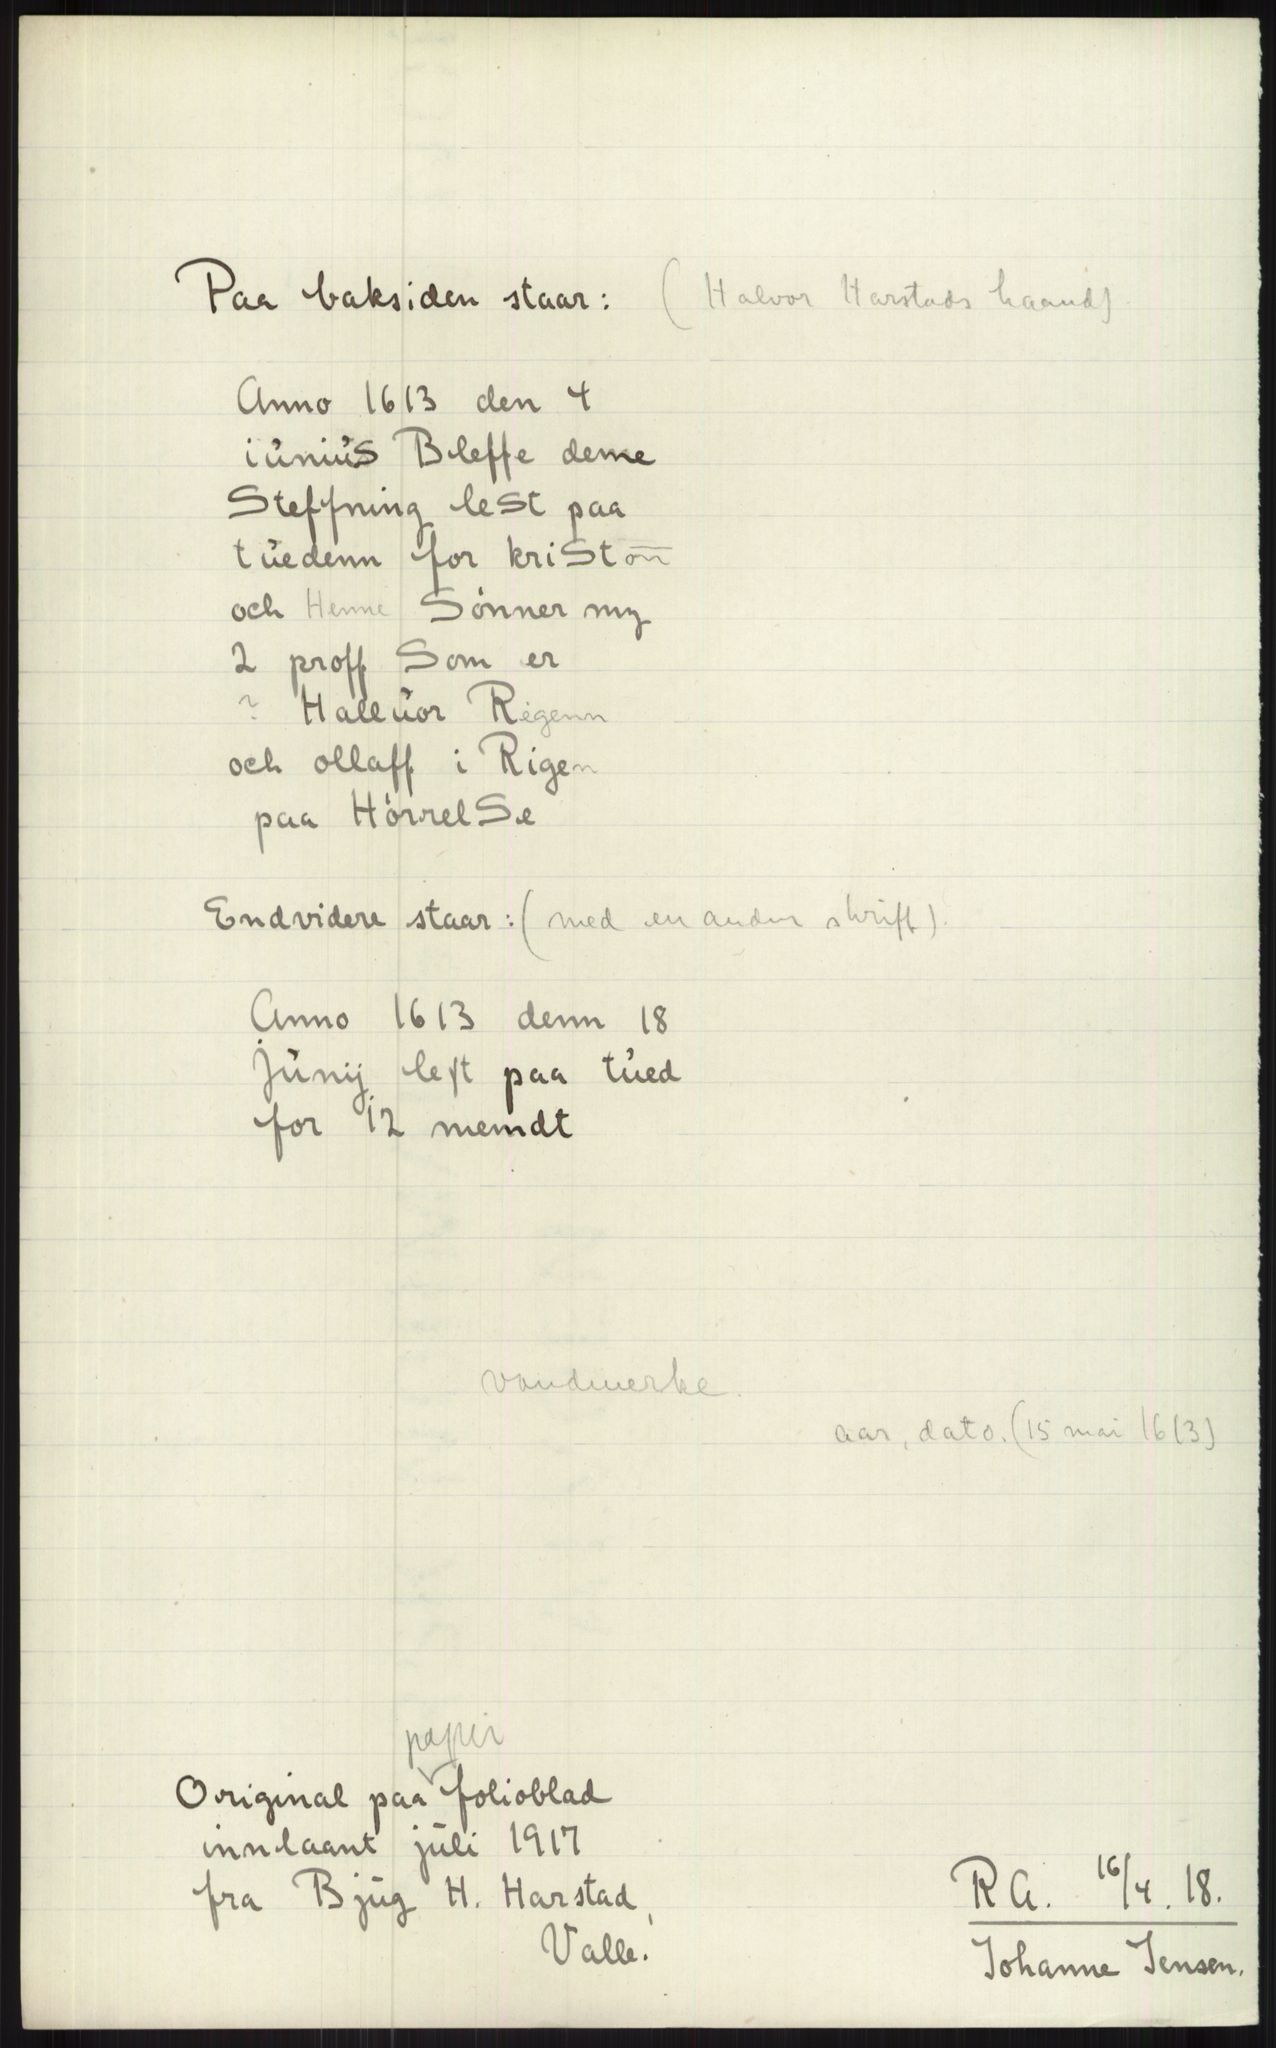 Paa baksiden staar: (Halvor Harstads haand)
Anno 1613 den 4
iúniús Bleffe denne
Steffning leSt paa
túedenn for kriSt
och Henne Sónner
2 proff Som er
? Halluor Rigenn
och ollaff i Rigen
paa HórrelSe
Endvidere staar: (med en anden skrift).
Anno 1613 denn 18
Júnij lest paa túed
for 12 memdt
vandmerke.
aar, dato. (15 mai 1613)
papir
Original paa folioblad
innlaant júli 1917
fra Bjúg H. Harstad,
Valle.
R A. 16/4. 18.
Johanne Jensen.